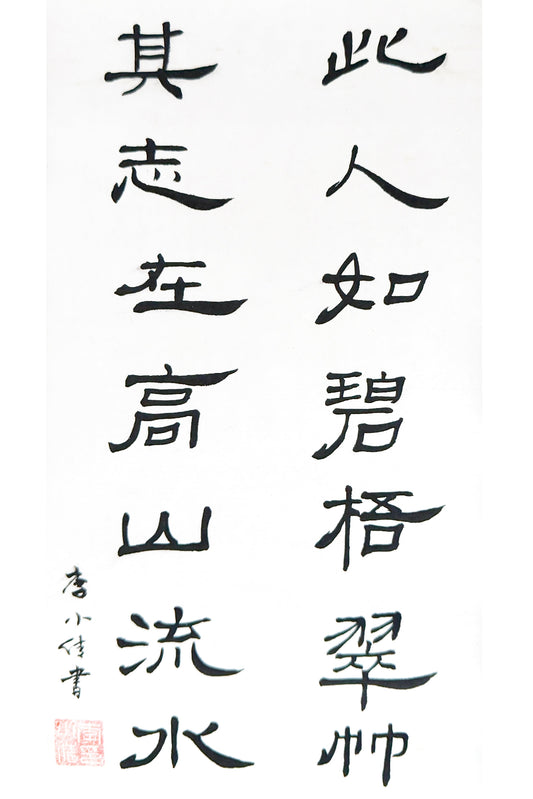 此人如碧梧翠竹
其志在高山流水
李小倩書